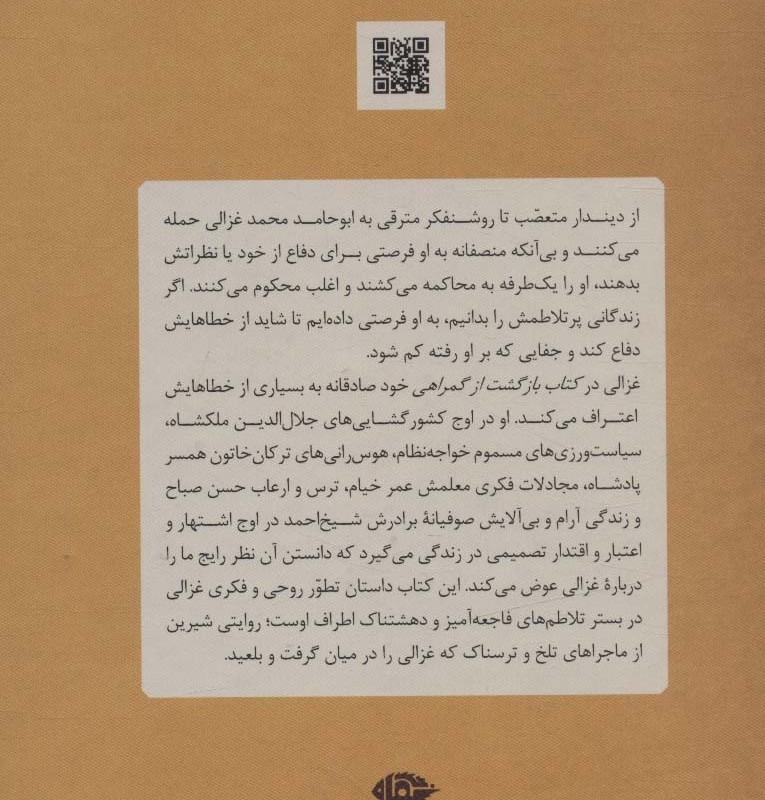 از دیندار متعصّب تا روشنفکر مترقی به ابوحامد محمد غزالی حمله
می‌کنند و بی‌آنکه منصفانه به او فرصتی برای دفاع از خود یا نظراتش
بدهند، او را یک‌طرفه به محاکمه می‌کشند و اغلب محکوم می‌کنند. اگر
زندگانی پرتلاطمش را بدانیم، به او فرصتی داده‌ایم تا شاید از خطاهایش
دفاع کند و جفایی که بر او رفته کم شود.
غزالی در کتاب بازگشت از گمراهی خود صادقانه به بسیاری از خطاهایش
اعتراف می‌کند. او در اوج کشورگشایی‌های جلال‌الدین ملکشاه،
سیاست‌ورزی‌های مسموم خواجه‌نظام، هوس‌رانی‌های ترکان‌خاتون همسر
پادشاه، مجادلات فکری معلمش عمر خیام، ترس و ارعاب حسن صباح
و زندگی آرام و بی‌آلایش صوفیانهٔ برادرش شیخ‌احمد در اوج اشتهار و
اعتبار و اقتدار تصمیمی در زندگی می‌گیرد که دانستن آن نظر رایج ما را
دربارهٔ غزالی عوض می‌کند. این کتاب داستان تطوّر روحی و فکری غزالی
در بستر تلاطم‌های فاجعه‌آمیز و دهشتناک اطراف اوست؛ روایتی شیرین
از ماجراهای تلخ و ترسناک که غزالی را در میان گرفت و بلعید.